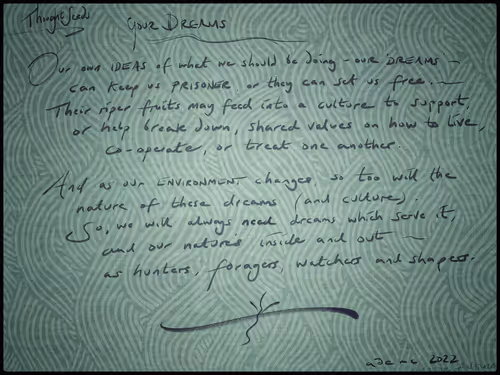 Thought Seeds
YOUR DREAMS
OUR OWN IDEAS of what we should be doing - OUR 'DREAMS' -
can keep us PRISONER or they can set us free. -
Their riper fruits may feed into a culture to support,
or help break down, shared values on how to live,
co-operate, or treat one another.
And as our ENVIRONMENT changes, so too will the
nature of these dreams (and culture).
So, we will always need dreams which serve it,
and our natures inside and out -
as hunters, foragers, watchers and shapers.
2022